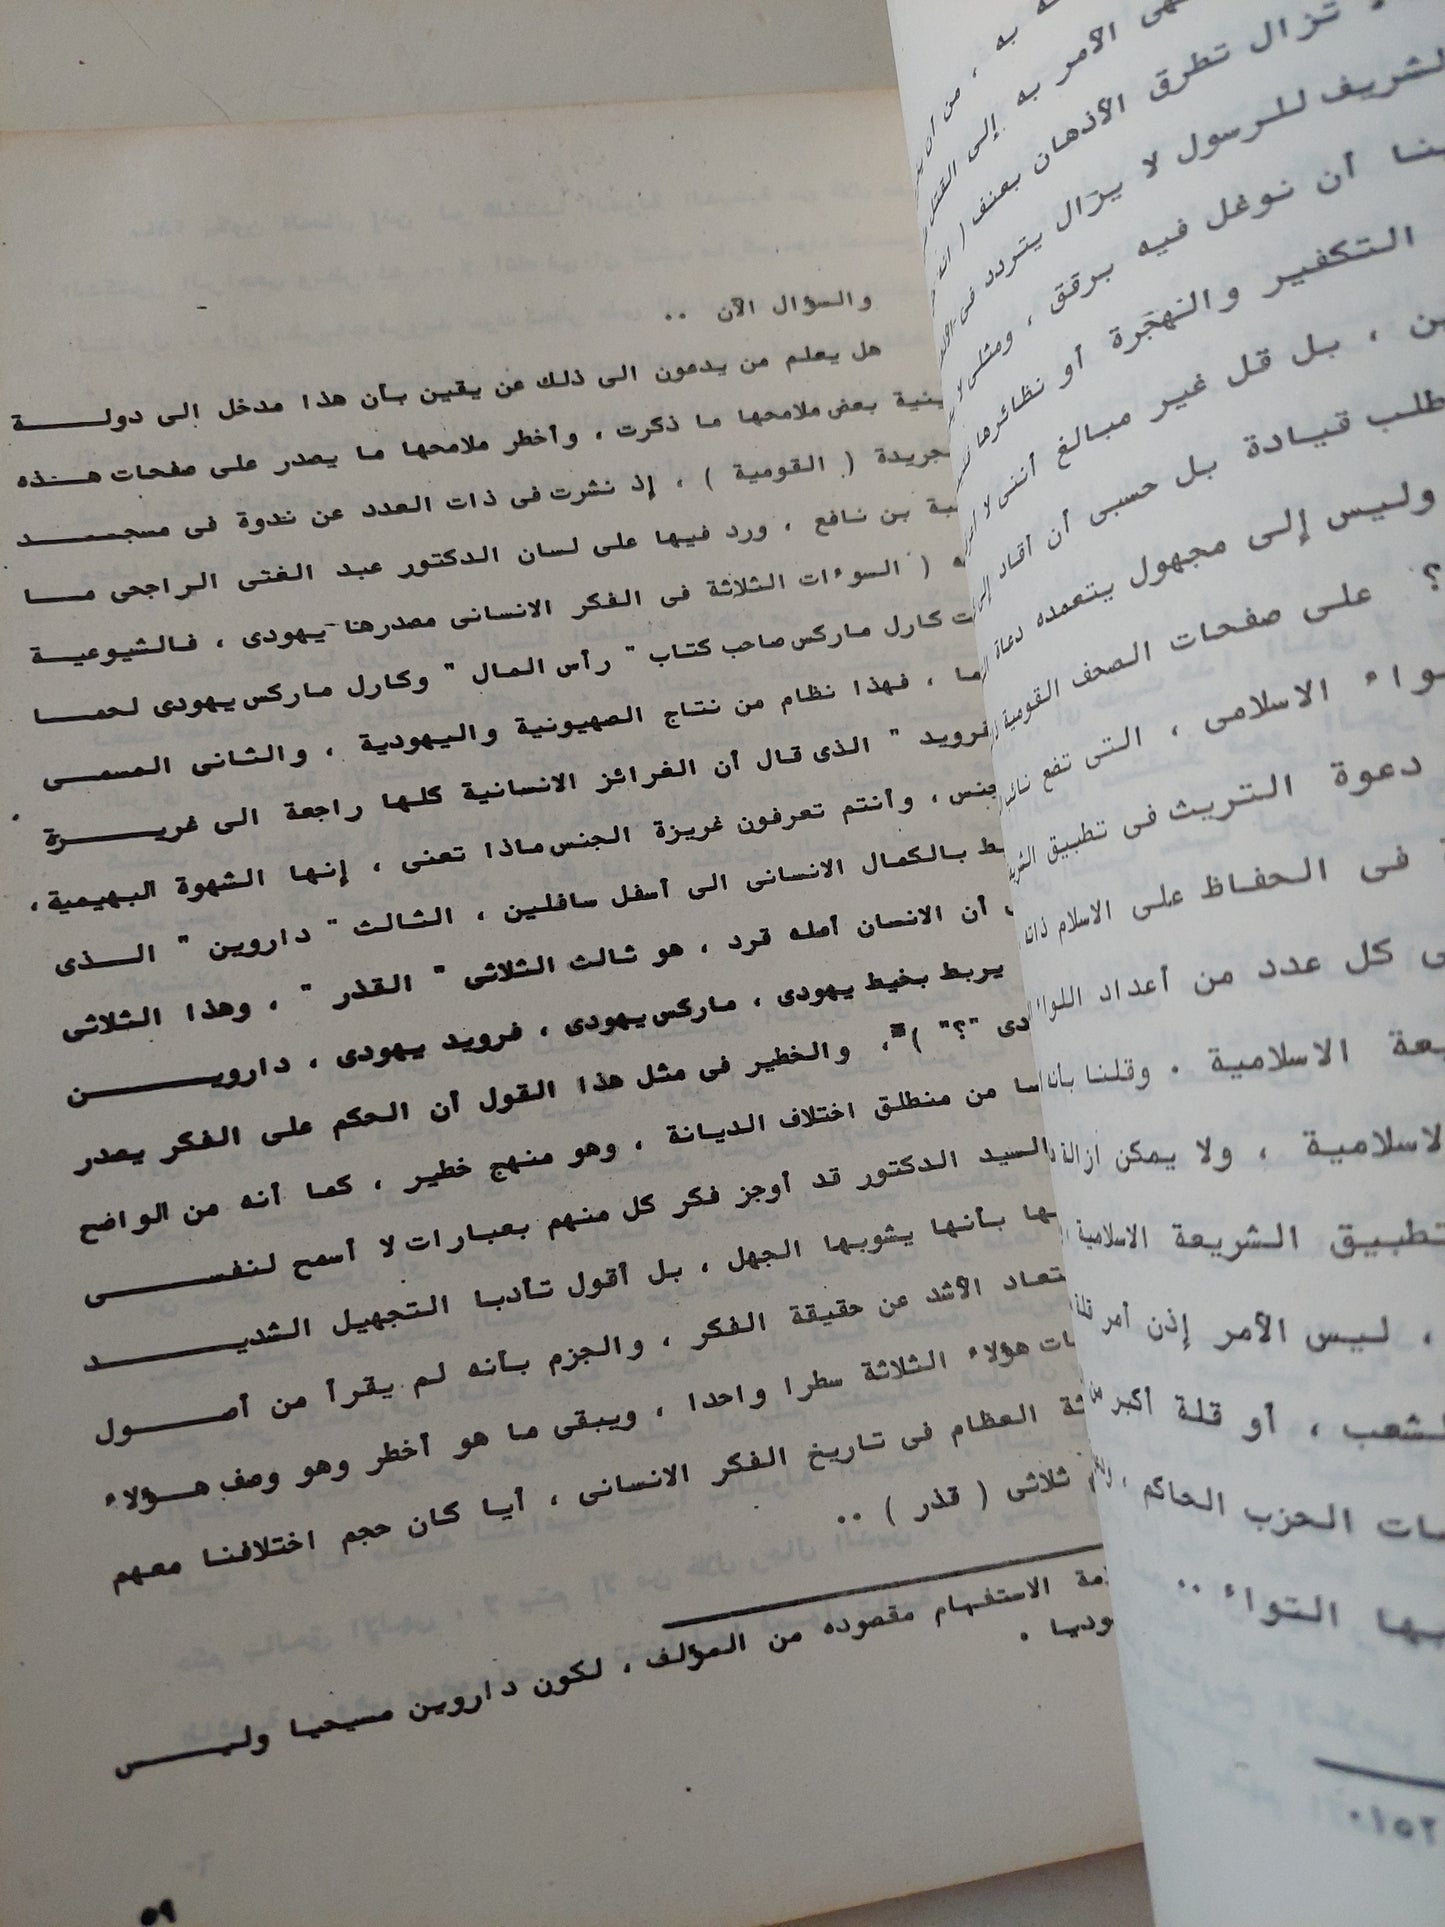 والسؤال الآن ..
هل يعلم من يدعون الى ذلك عن يقين بأن هذا مدخل الى دولة
ينية بعض ملامحها ما ذكرت ، وأخطر ملامحها ما يصدر على صفحات هذه
جريدة ( القومية ) ، إذ نشرت فى ذات العدد عن ندوة فى مسجد
بة بن نافع ، ورد فيها على لسان الدكتور عبد الغنى الراجحى ما
ه ( السوءات الثلاثة فى الفكر الانسانى مصدرها يهودى ، فالشيوعية
ت كارل ماركس صاحب كتاب " رأس المال " وكارل ماركس يهودى لحما
ما ، فهذا نظام من نتاج الصهيونية واليهودية ، والثانى المسمى
فرويد " الذى قال أن الغرائز الانسانية كلها راجعة الى غريزة
جنس ، وأنتم تعرفون غريزة الجنس ماذا تعنى ، إنها الشهوة البهيمية ،
ط بالكمال الانسانى الى أسفل سافلين ، الثالث " داروين " الذى
أن الانسان أصله قرد ، هو ثالث الثلاثى " القذر " ، وهذا الثلاثى
يربط بخيط يهودى ، ماركس يهودى ، فرويد يهودى ، داروين
دى "؟" )* ، والخطير فى مثل هذا القول أن الحكم على الفكر يصدر
سا من منطلق اختلاف الديانة ، وهو منهج خطير ، كما أنه من الواضح
السيد الدكتور قد أوجز فكر كل منهم بعبارات لا أسمح لنفسى
ها بأنها يشوبها الجهل ، بل أقول تأدبا التجهيل الشديد
تعاد الأشد عن حقيقة الفكر ، والجزم بأنه لم يقرأ من أصول
ات هؤلاء الثلاثة سطرا واحدا ، ويبقى ما هو أخطر وهو وصف هؤلاء
ثة العظام فى تاريخ الفكر الانسانى ، أيا كان حجم اختلافنا معهم
ثلاثى ( قذر ) ..
مة الاستفهام مقصوده من المؤلف ، لكون داروين مسيحيا وليس
وديا .
٥٩
به ، من أن
هى الأمر به إلى القتل
تزال تطرق الأذهان بعنف (
لشريف للرسول لا يزال يتردد فى
نا أن نوغل فيه برفق ، ومثلى لا
التكفير والهجرة أو نظائرها
ن ، بل قل غير مبالغ أننى لا
طلب قيادة بل حسبى أن أقاد
وليس إلى مجهول يتعمده دعاة
؟ على صفحات الصحف القومية
واء الاسلامى ، التى تقع
دعوة التريث فى تطبيق
فى الحفاظ على الاسلام ذاته
ى كل عدد من أعداد اللواء
يعة الاسلامية . وقلنا بأنه
لاسلامية ، ولا يمكن ازالة
تطبيق الشريعة الاسلامية
، ليس الأمر إذن أمر قلة
لشعب ، أو قلة أكبر من
ات الحزب الحاكم ،
يها التواء ..